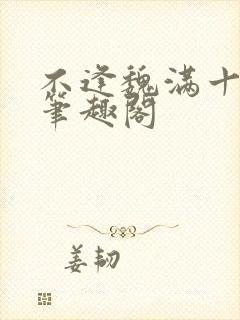 不逢魏满十
筆趣阁
姜韧